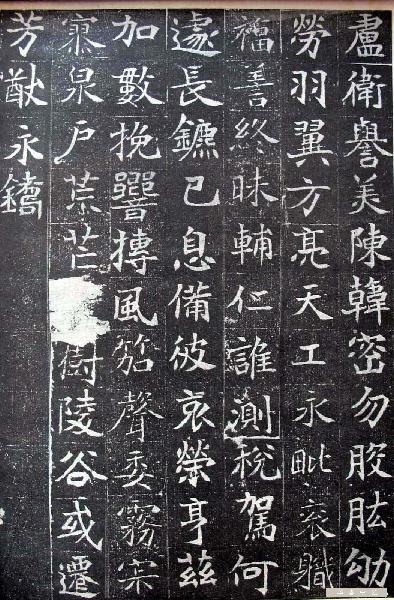 盧衛譽美陳韓密勿股肱劬
勞羽翼方亮天工永毗衮職
福善終昧輔仁誰測稅駕何
遽長鑣已息備彼哀榮亨茲
加數挽響摶風笳聲委霧寂
寥泉戶荒芒樹陵谷或遷
芳猷永鐫